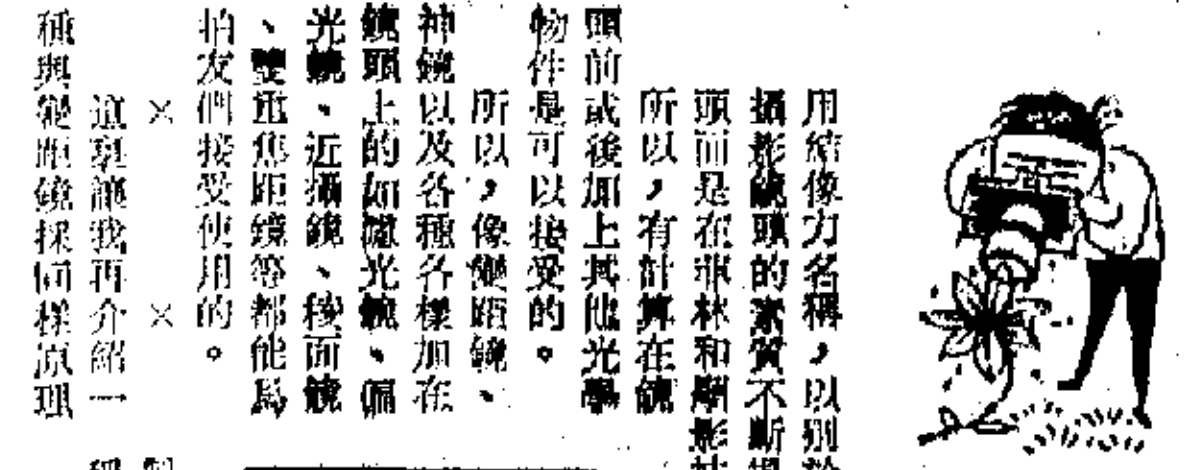 用結像力名稱，以別於
攝影鏡頭的素質不斷提
頭而是在菲林和顯影
所以，有計算在鏡
頭前或後加上其他光學
物件是可以接受的。
所以，像變距鏡、
神鏡以及各種各樣加在
鏡頭上的如濾光鏡、偏
光鏡、近攝鏡、稜面鏡
、雙重焦距鏡等都能爲
拍友們接受使用的。
× ×
這裏讓我再介紹一
種與變距鏡採同樣原理